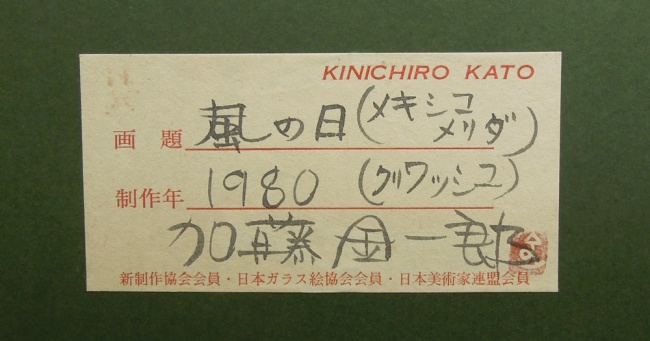 KINICHIRO KATO
画 題 風の日(メキシコ メリダ)
制作年 1980 (グワッシュ)
加藤金一郎
新制作協会会員・日本ガラス絵協会会員・日本美術家連盟会員